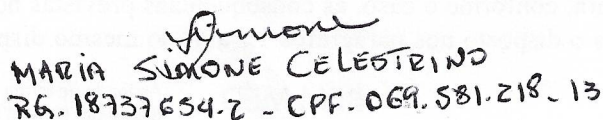 Simone
MARIA SIMONE CELESTRINO
RG. 18737654-2 - CPF. 069.581.218-13